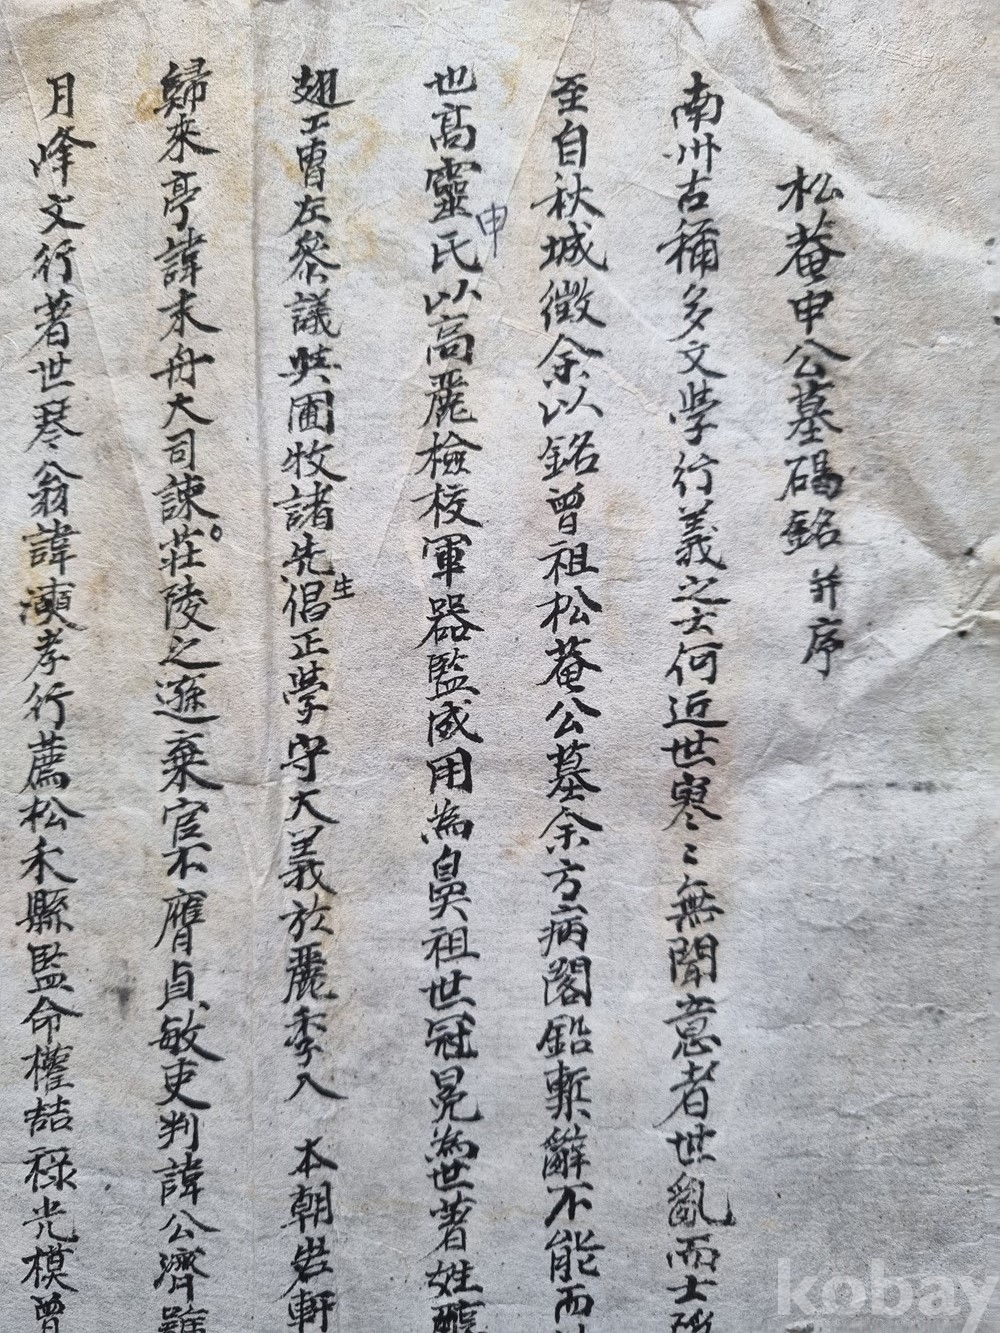 松菴申公墓碣銘 并序
南州古稱多文學行義之士何近世寥〻無聞意者世亂而士
至自秋城徵余以銘曾祖松菴公墓余方病閣鉛槧辭不能而
也高靈申氏以高麗檢校軍器監成用為鼻祖世冠冕為世著姓
翅工曺左參議典圃牧諸先生倡正學守大義於麗季入 本朝岩軒
歸來亭諱末舟大司諫莊陵之遜棄官不膺貞敏吏判諱公濟
月峰文行著世琴翁諱濵孝行薦松禾縣監命權喆祿光模曾
kobay